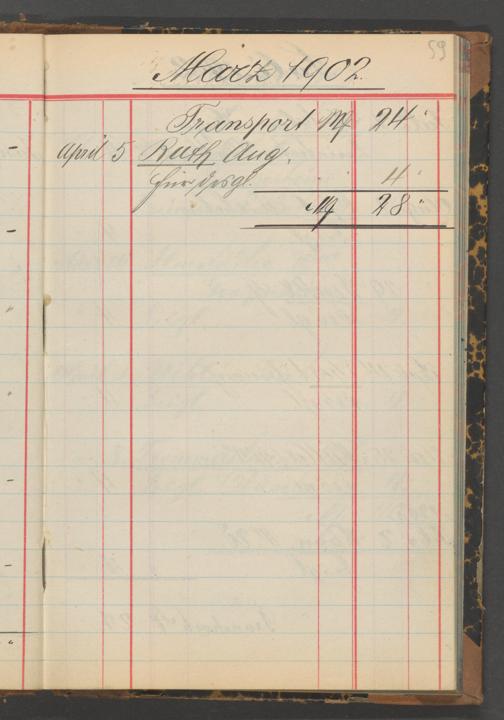 59
März 1902.
Transport M 24 "
April 5 Ruth Aug.
für desgl. " 4 "
M 28 "